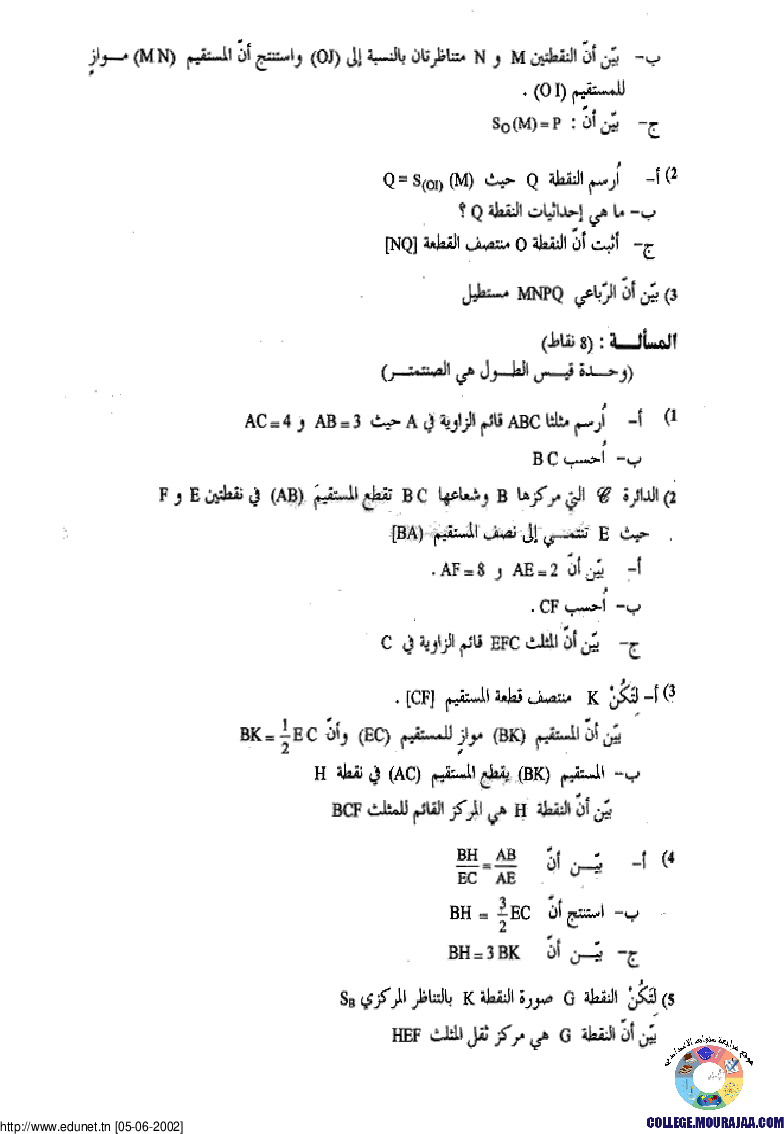 ب- بيّن أنّ النقطتين M و N متناظرتان بالنسبة إلى (OJ) واستنتج أنّ المستقيم (MN) مـواز
للمستقيم (OI) .
ج- بيّن أنّ : S_O(M) = P
2) أ- أُرسم النقطة Q حيث Q = S_(OI) (M)
ب- ما هي إحداثيات النقطة Q ؟
ج- أثبت أنّ النقطة O منتصف القطعة [NQ]
3) بيّن أنّ الرّباعي MNPQ مستطيل
المسألـــة : (8 نقاط)
(وحـدة قيـس الطـول هي الصنتمتـر)
1) أ- أُرسم مثلثا ABC قائم الزاوية في A حيث AB = 3 و AC = 4
ب- أُحسب BC
2) الدائرة 𝒞 التي مركزها B وشعاعها BC تقطع المستقيمَ (AB) في نقطتين E و F
حيث E تنتمـي إلى نصف المستقيم [BA) .
أ- بيّن أنّ AE = 2 و AF = 8 .
ب- أُحسب CF .
ج- بيّن أنّ المثلث EFC قائم الزاوية في C
3) أ- لتَكُنْ K منتصف قطعة المستقيم [CF] .
بيّن أنّ المستقيم (BK) موازٍ للمستقيم (EC) وأنّ BK = 1/2 EC
ب- المستقيم (BK) يقطع المستقيم (AC) في نقطة H
بيّن أنّ النقطة H هي المركز القائم للمثلث BCF
4) أ- بيّـن أنّ BH/EC = AB/AE
ب- استنتج أنّ BH = 3/2 EC
ج- بيّـن أنّ BH = 3 BK
5) لتَكُنْ النقطة G صورة النقطة K بالتناظر المركزي S_B
بيّن أنّ النقطة G هي مركز ثقل المثلث HEF
موقع مراجعة
COLLEGE.MOURAJAA.COM
http://www.edunet.tn [05-06-2002]